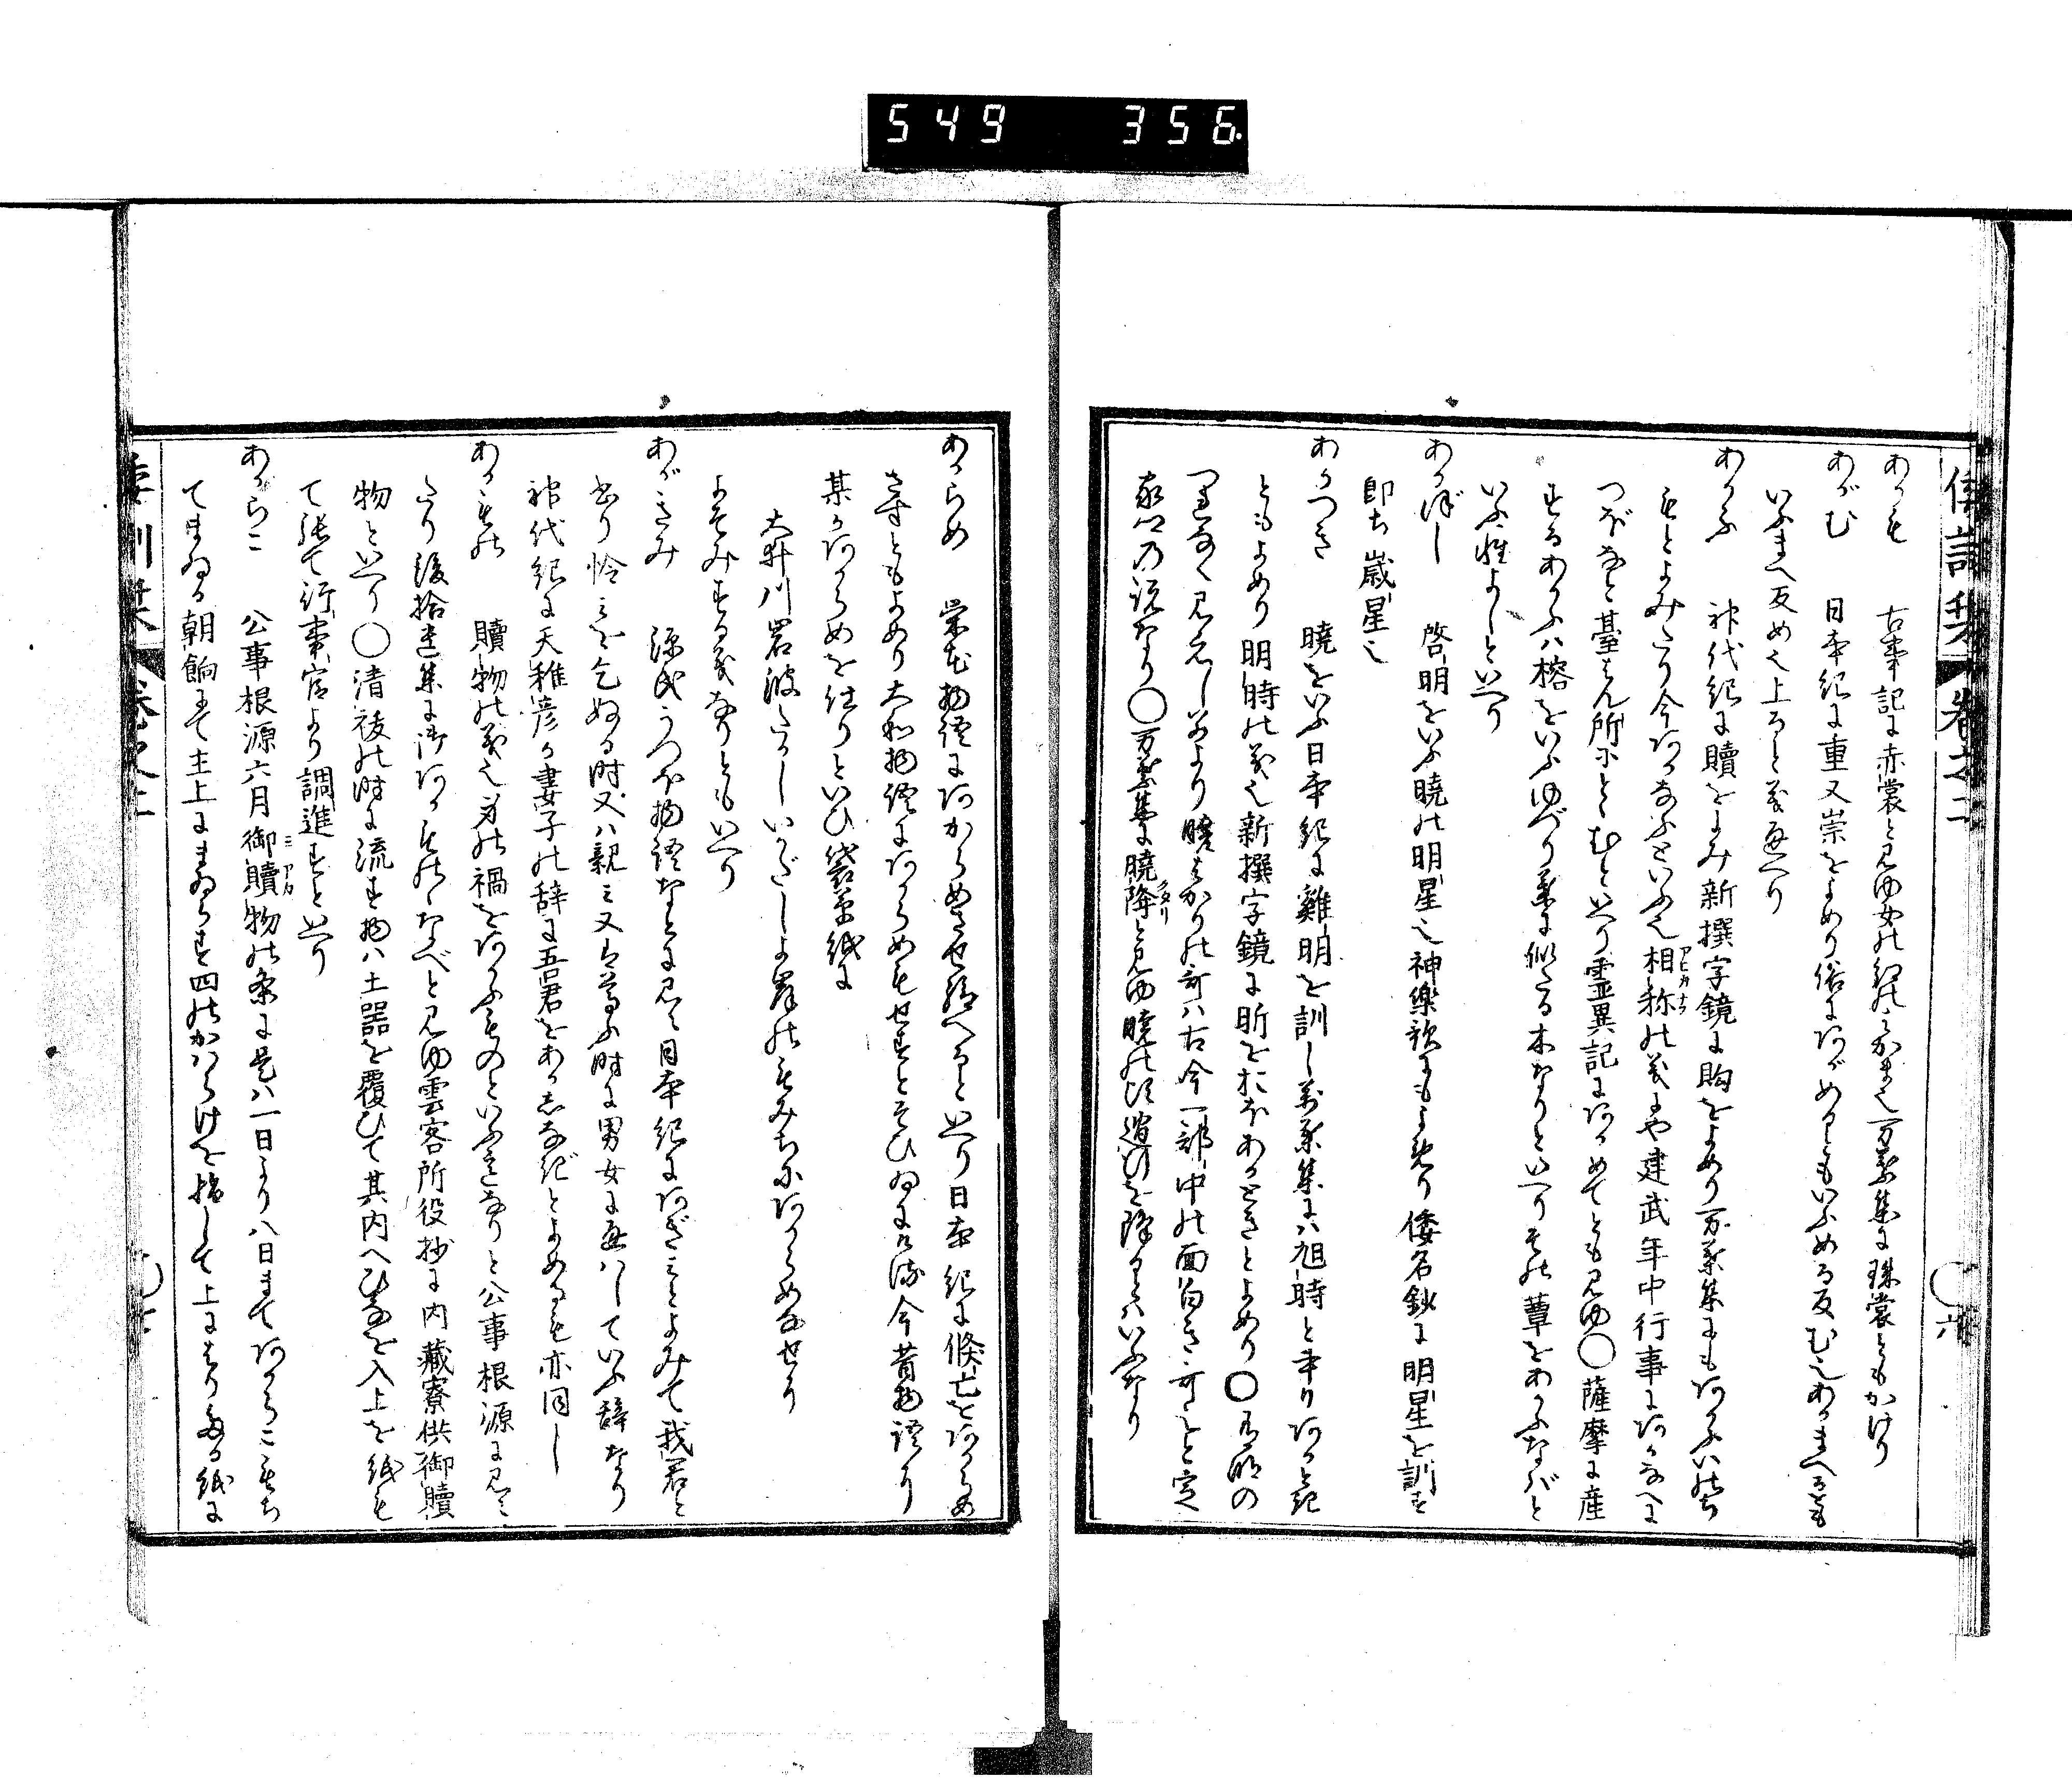 549 356
倭訓栞 巻之二 ○六
あかも 古事記に赤裳と見ゆ女の紅のもかま也万葉集に珠裳ともかけり
あがむ 日本紀に重又崇をよめり俗にあがめるともいふめる反む也あがまへるとも
いふまへ反め也上るの義なへり
あかふ 神代紀に贖をよみ新撰字鏡に購をよめり万葉集にもあかふいのち
もとよみたり今あかなふといふ也相称の義にや建武年中行事にあかなへに
つきなと臺はん所にとゝむといへり霊異記にあかめてとも見ゆ○薩摩に産
するあかふハ榕をいふゆづり葉に似たる木なりといへり其の蕈をあかふなバと
いふ雅よしといへり
あかぼし 啓明をいふ暁の明星也神樂歌にもよめり倭名鈔に明星を訓す
即ち歳星也
あかつき 暁をいふ日本紀に雞明を訓し萬葉集にハ旭時と書りあかとき
ともよめり明時の義也新撰字鏡に昕をおほあかときとよめり○有明の
つれなく見えしわかれより暁はかりの哥ハ古今一部中の面白き哥と定
家卿の説なり○万葉集に暁降と見ゆ暁の時過ゆを降るとハいふなり
あからめ 栄花物語にあからめさせ給へると いへり日本紀に倏亡をあからめ
さすともよめり大和物語にあからめもせすとそひゐにける今昔物語り
某かあからめを仕りといひ袋草紙に
大井川岩波たかしいかだしよ岸のもみちにあからめなせそ
よそみする義なりともいへり
あがきみ 源氏うつほ物語なとに見ゆ日本紀にあぎみとよみて我君と
書り怜みを乞ぬる時又ハ親み又は尊ふ時に男女に通ハしていふ辞なり
神代紀に天稚彦か妻子の辞に吾君をあかきみとよめるも亦同し
あかもの 贖物の義也身の禍をあかふものといふ意なりと公事根源に見え
たり後拾遺集に御あかものゝなべと見ゆ雲客所役抄に内藏寮供御贖
物といへり○清祓の時に流す物ハ土器を覆ひて其内へひなを入上を紙も
て張て行事官より調進すといへり
あからこ 公事根源六月御贖物の条に是ハ一日より八日まてあからこもち
てまゐる朝餉にて主上にまゐらす四のかハらけを指して上にはりたる紙に
倭訓栞 巻之二 ○七